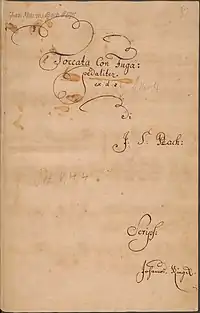 Toccata Con Fuga:
pedaliter
ex. d
di
J. S. Bach:
Script:
Johannes Ringk.